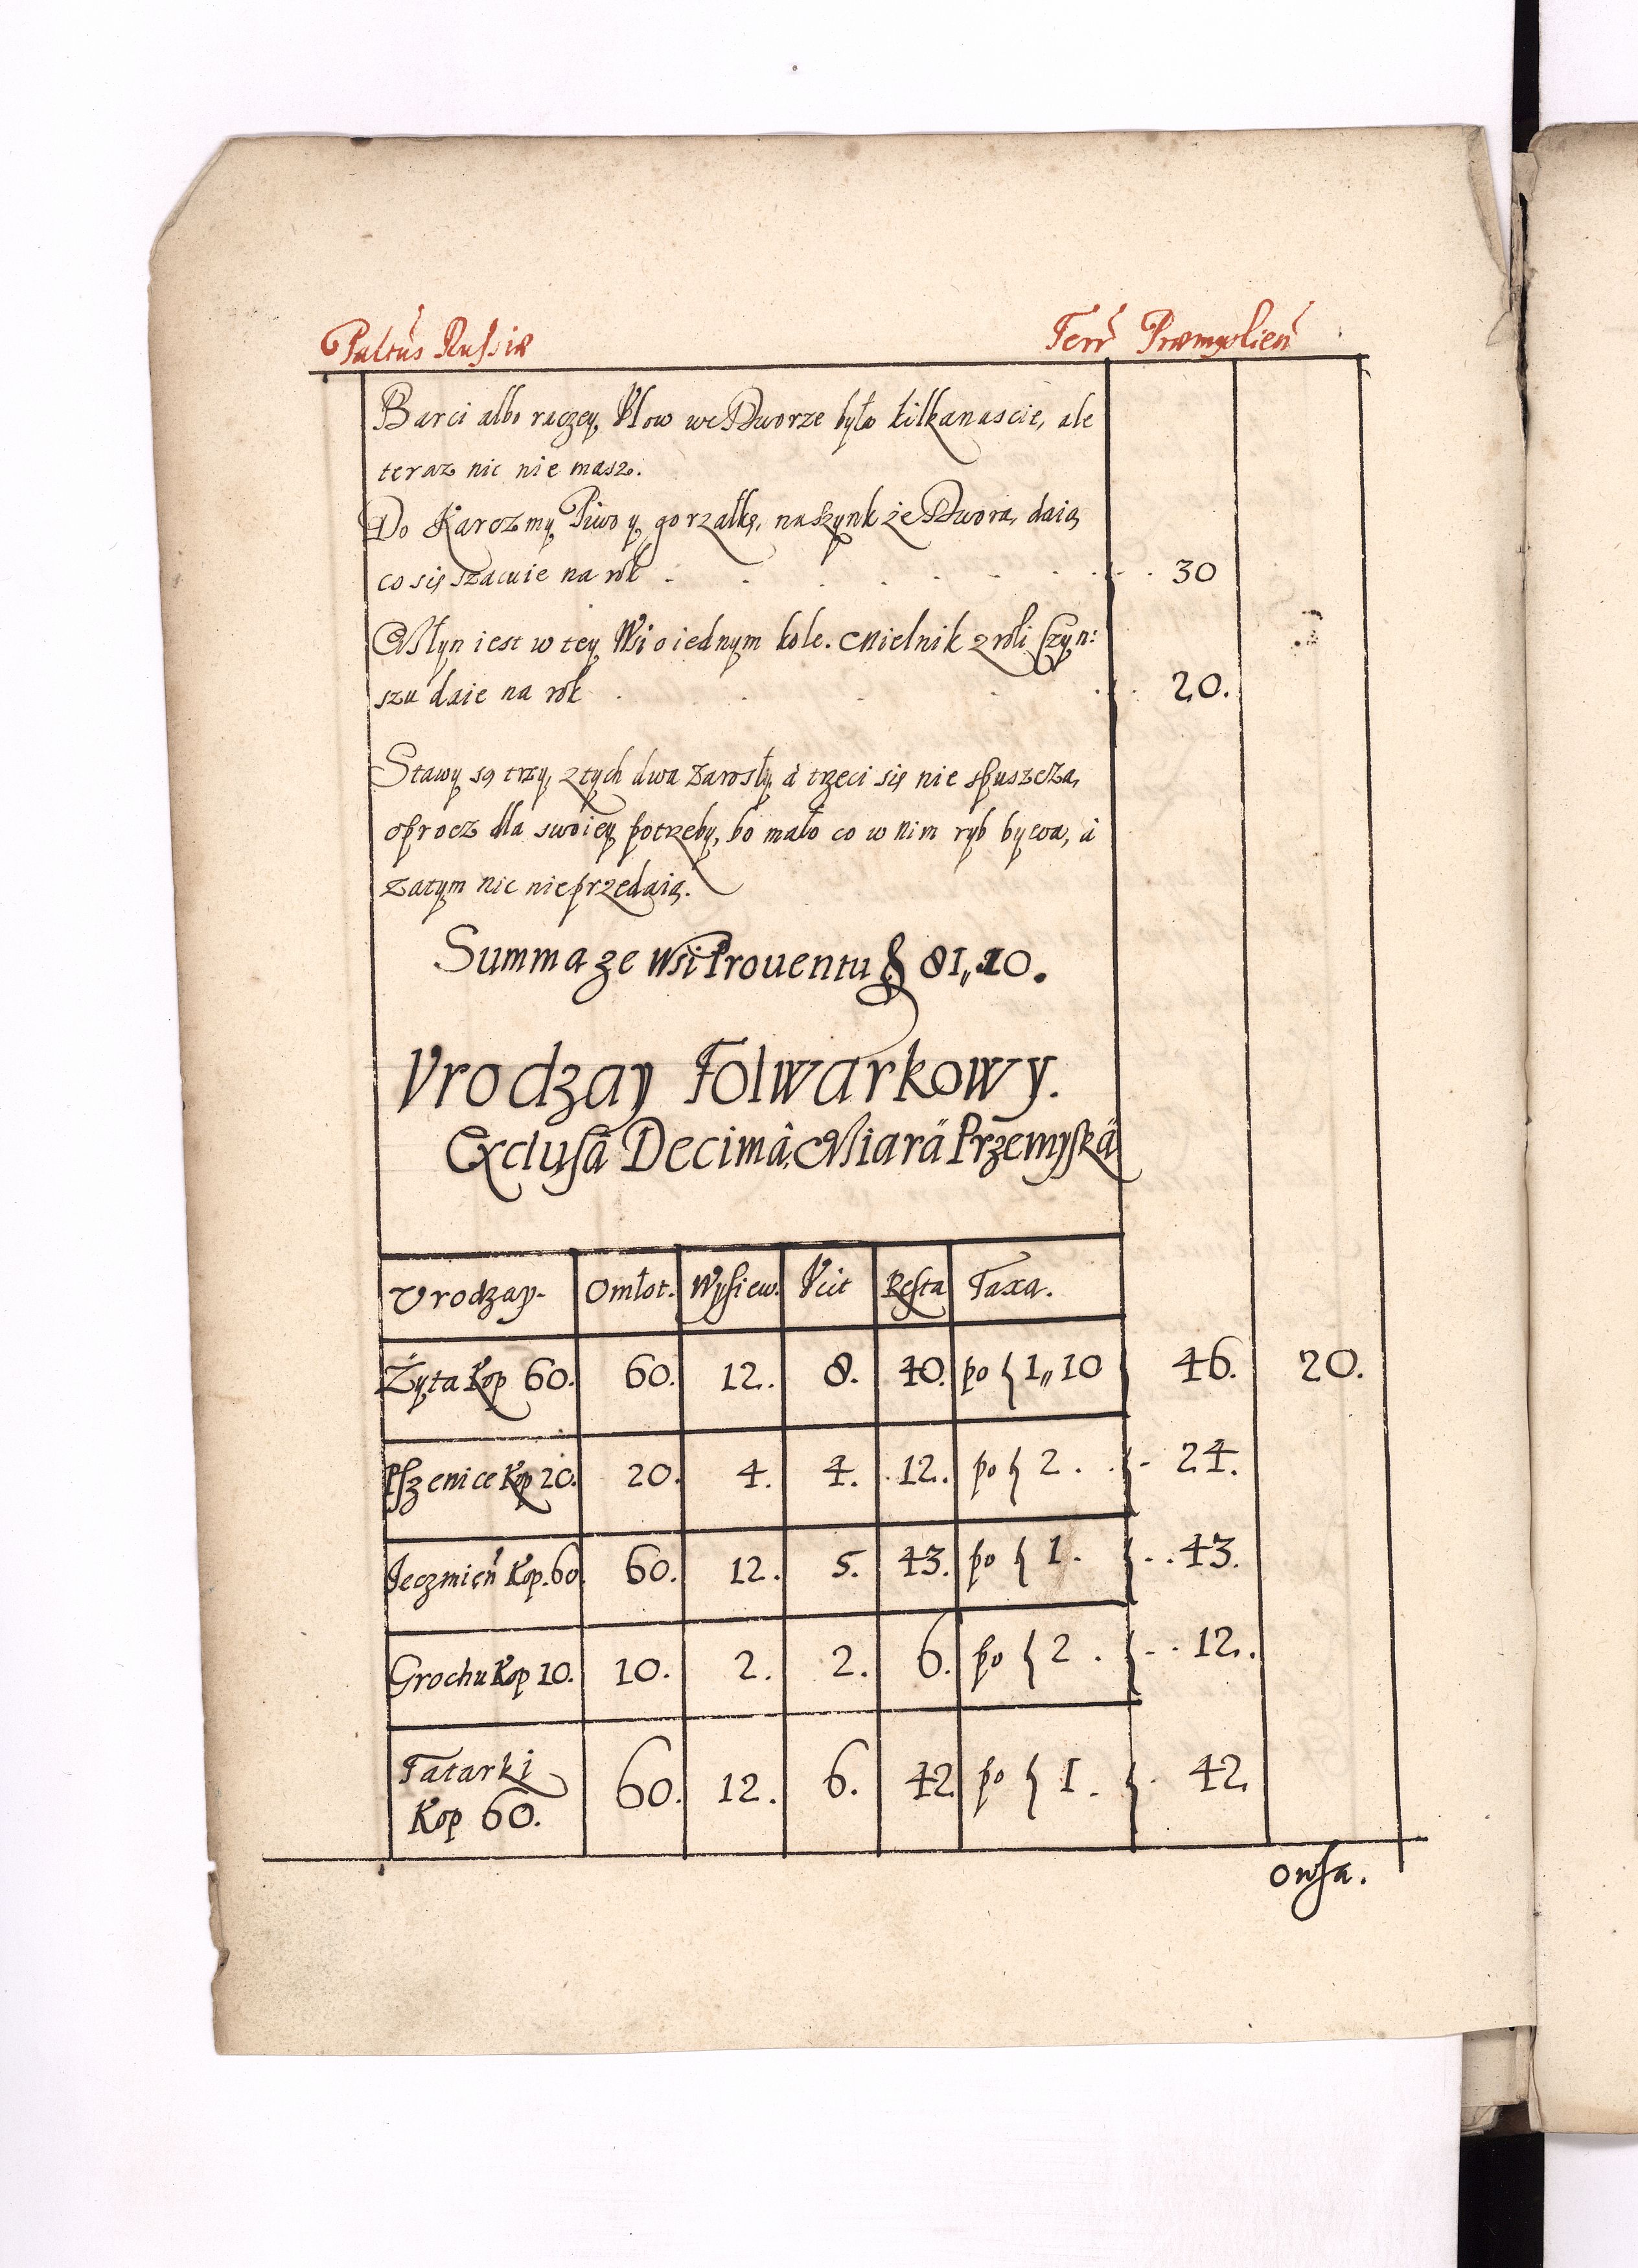 Paltûs Russiæ Terr̃ Præmysłień
Barci albo raczey Vlow we Dworze było kilkanascie, ale
teraz nic nie masz.
Do Karczmy Piwo y gorzałkę, naszynk ze Dwora, daią
co się szacuie na rok 30
Młyn iest w tey Wsi o iednym kole. Mielnik z roli Czyn:
szu daie na rok 20.
Stawy są trzy, z tych dwa zarosły, á trzeci się nie spuszcza,
oprocz dla swoiey potrzeby, bo mało co w nim ryb bywa, á
zatym nic nieprzedaią.
Summa ze Wsi Prouentu 81,, 10.
Vrodzay Folwarkowy.
Exclusâ Decimâ, Miarą Przemyską
Vrodzay. Omłot. Wysiew. Vcit Resta Taxa.
Żyta Kop 60. 60. 12. 8. 40. po 1,, 10 46. 20.
Pszenice Kop 20. 20. 4. 4. 12. po 2. 24.
Jeczmień Kop. 60. 60. 12. 5. 43. po 1. 43.
Grochu Kop 10. 10. 2. 2. 6. po 2. 12.
Tatarki
Kop 60. 60. 12. 6. 42 po 1. 42
Owsa.